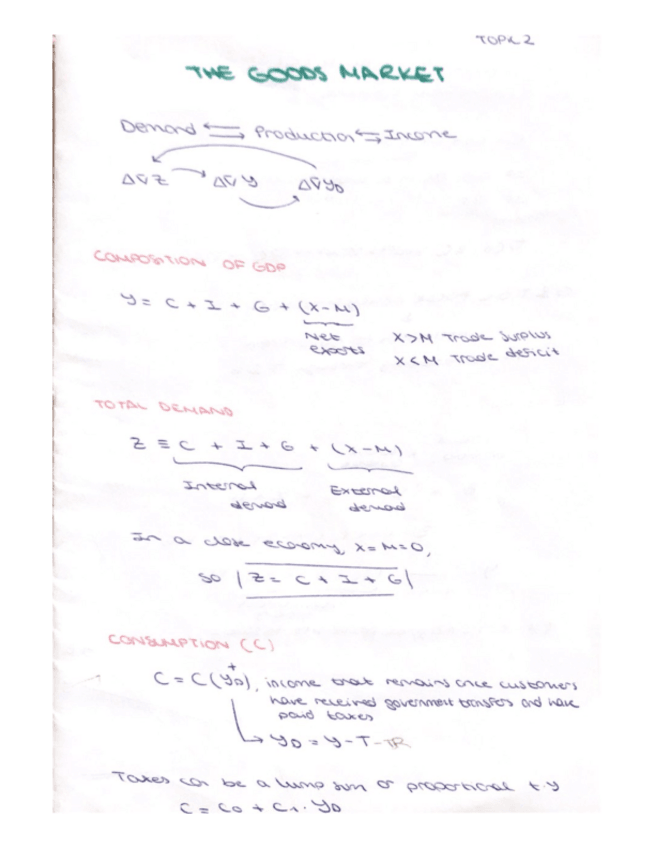 TOPIC 2
THE GOODS MARKET
Demand ⇆ Production ⇆ Income
Δ∇Z → Δ∇Y Δ∇YD
COMPOSITION OF GDP
Y = C + I + G + (X-M)
Net
exports
X>M Trade surplus
X<M Trade deficit
TOTAL DEMAND
Z ≡ C + I + G + (X-M)
Internal
demad
External
demad
In a close economy, X=M=0,
so | Z = C + I + G |
CONSUMPTION (C)
+
C = C(YD), income that remains once customers
have received government transfers and have
paid taxes
↳ YD = Y-T-TR
Taxes can be a lump sum or proportional t·Y
C = C0 + C1·YD